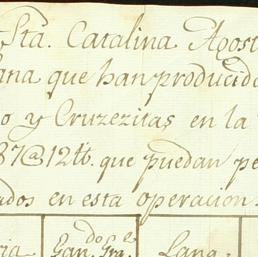 Sta. Catalina Agost
ana que han producido
o y Cruzezitas en la
37@12tt. que puedan pe
ados en esta operacion.
ria Gando Grae Lana